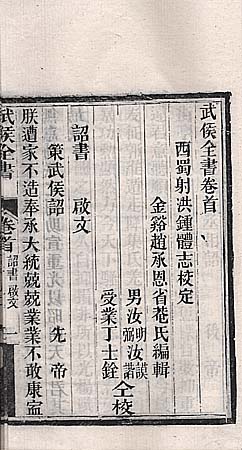 武侯全書卷首
西蜀射洪鍾體志校定
金谿趙承恩省菴氏編輯
男汝明弼汝謨諧
受業丁士銓
仝校
詔書 啟文
策武侯詔 先帝
朕遭家不造奉承大統兢兢業業不敢康寍
武侯全書 卷首 詔書 啟文 一